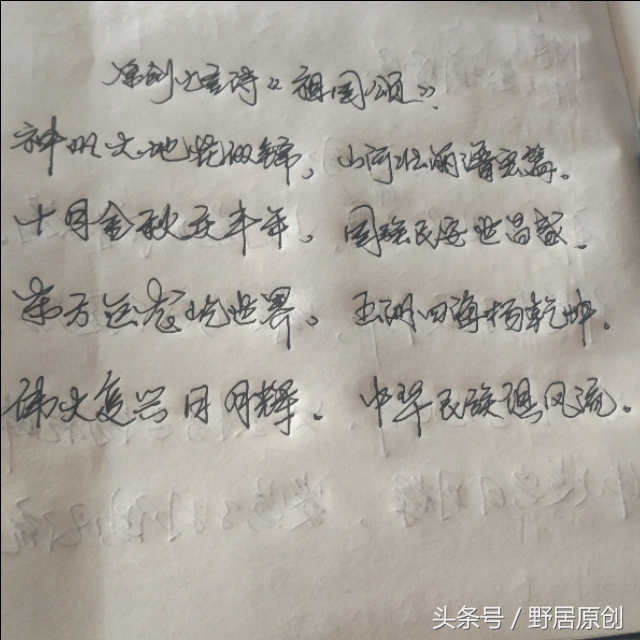 原创七言诗《祖国颂》
神州大地花似锦，山河壮丽谱宏篇。
十月金秋庆丰年，国强民安世昌盛。
东方巨龙屹世界，五洲四海扬乾坤。
伟大复兴日月辉，中华民族谱风流。
头条号 / 野居原创